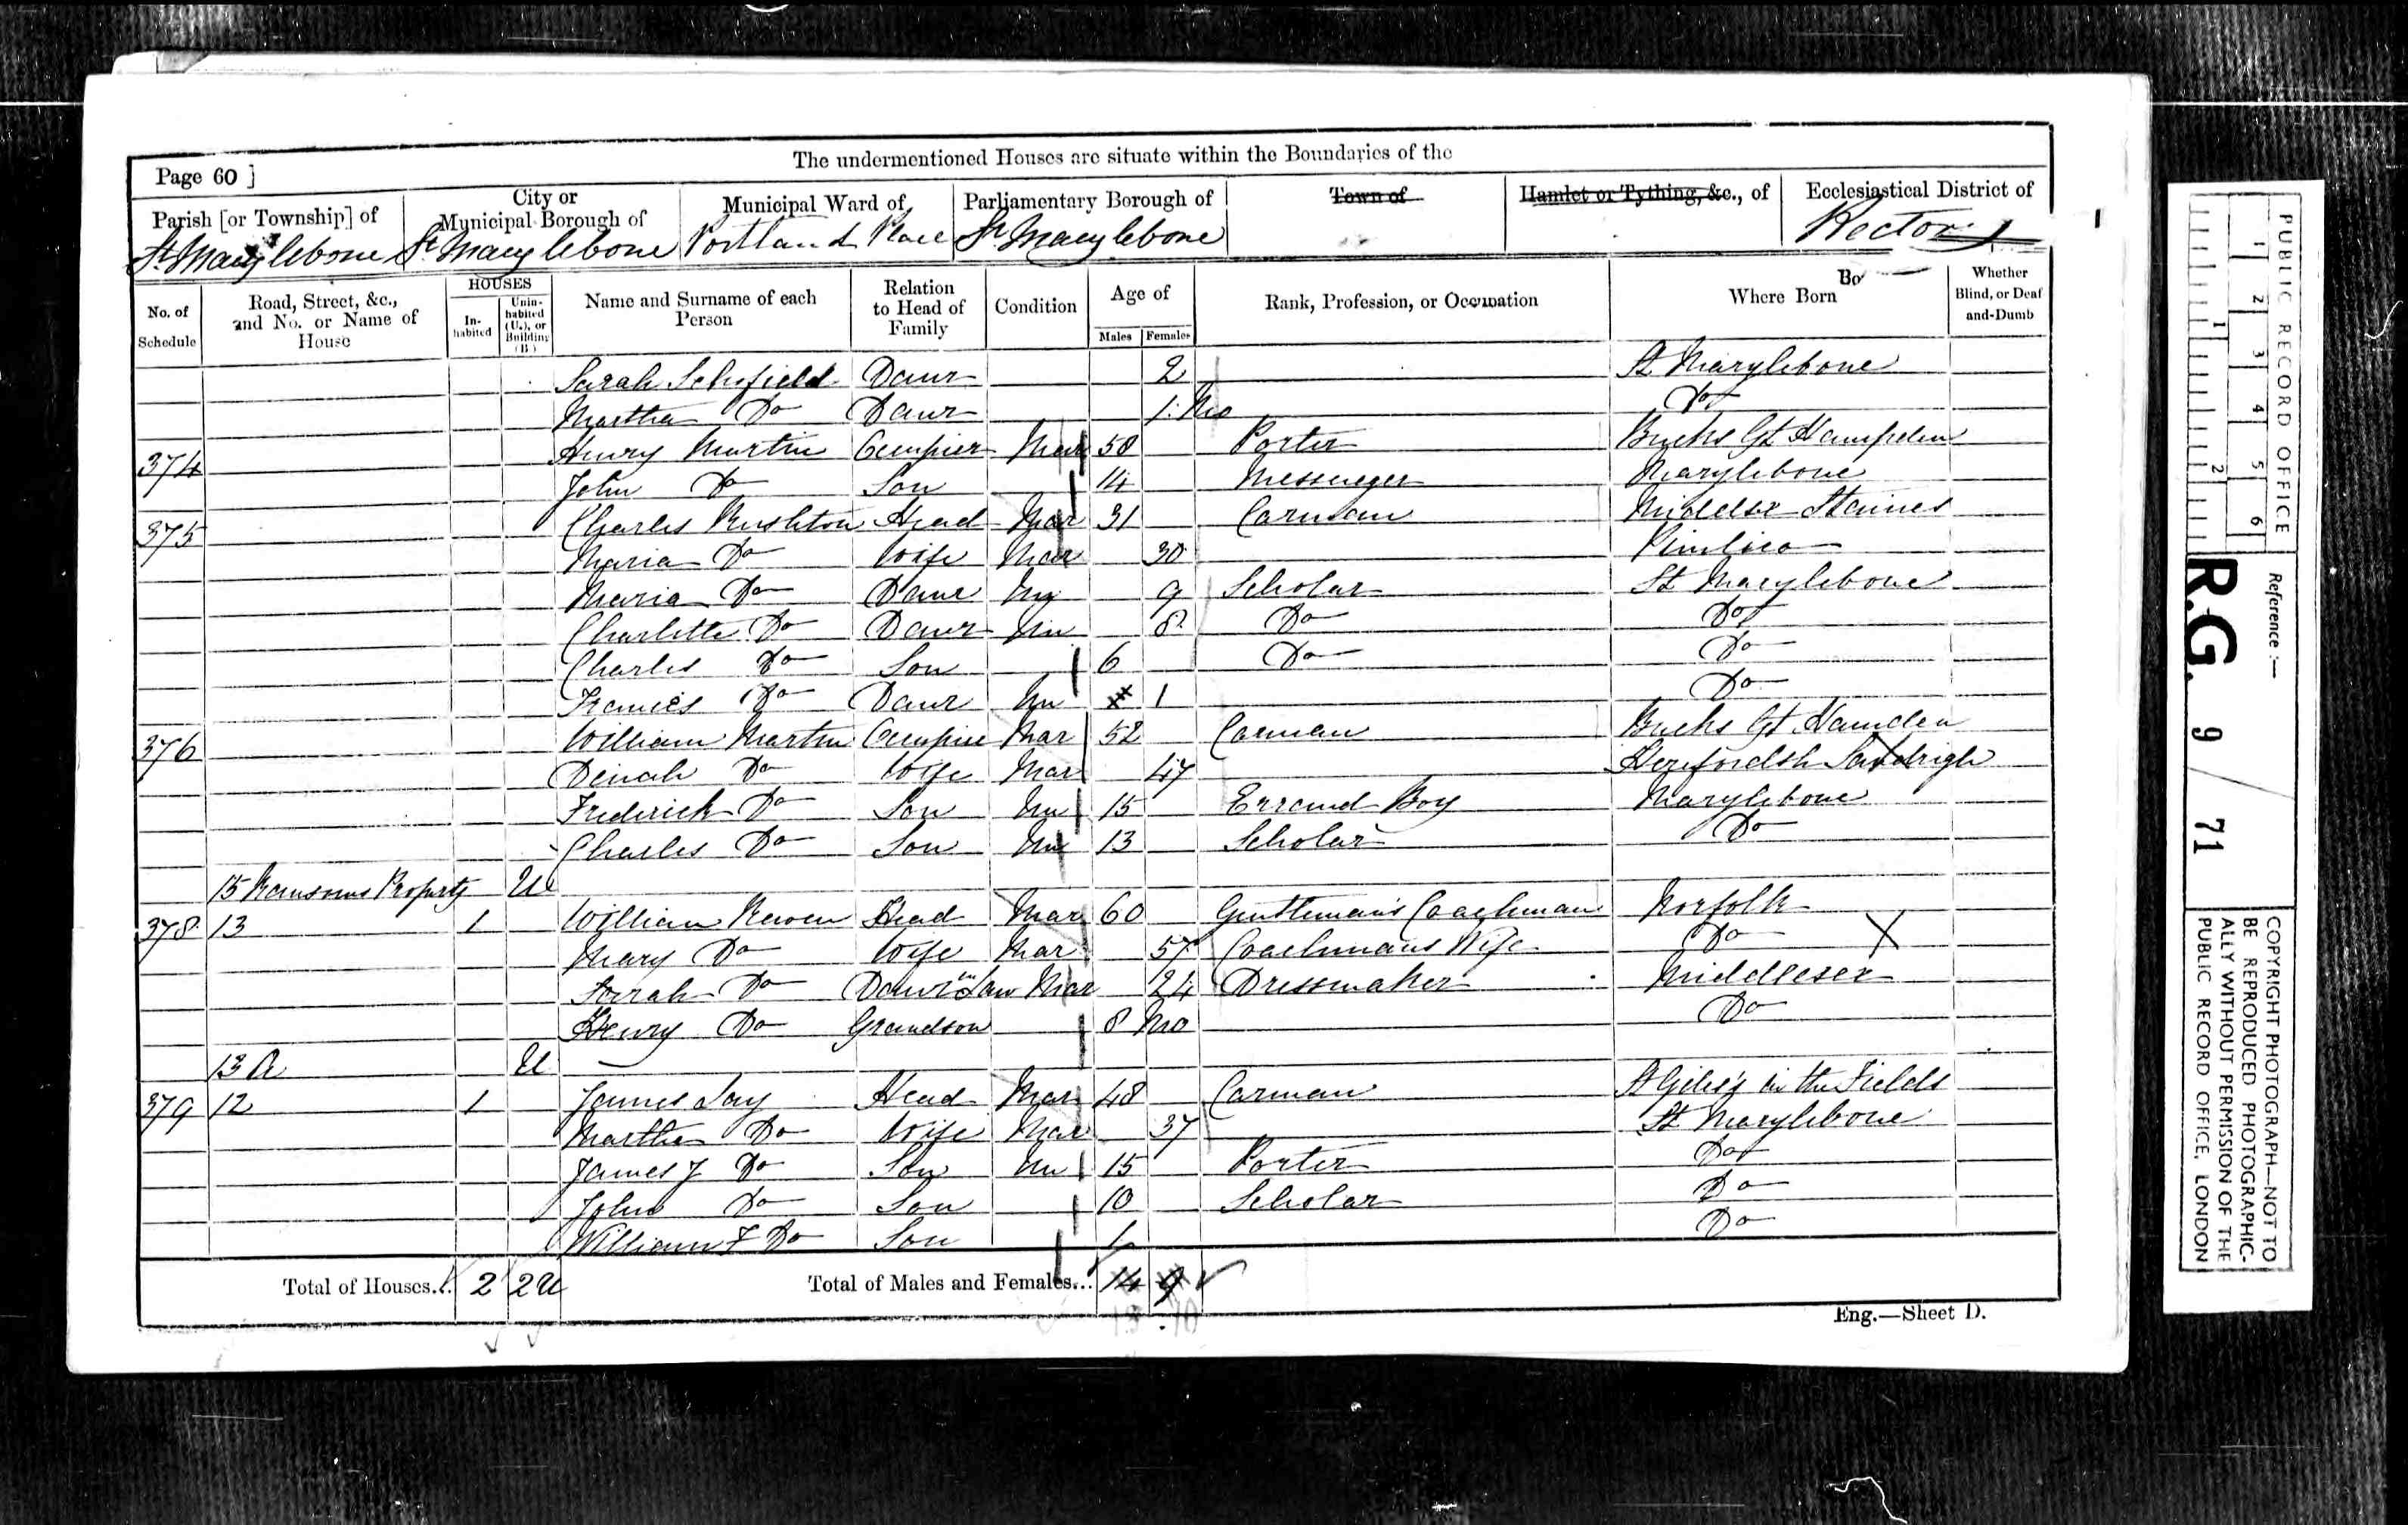 The undermentioned Houses are situate within the Boundaries of the
Page 60 ]
Parish [or Township] of
St Marylebone
City or Municipal Borough of
St Marylebone
Municipal Ward of
Portland Place
Parliamentary Borough of
St Marylebone
Town of
Hamlet or Tything, &c., of
Ecclesiastical District of
Rectory
No. of Schedule
Road, Street, &c., and No. or Name of House
HOUSES
Inhabited
Uninhabited (U.), or Building (B.)
Name and Surname of each Person
Relation to Head of Family
Condition
Age of
Males
Females
Rank, Profession, or Occupation
Where Born
Whether Blind, or Deaf-and-Dumb
Sarah Schofield Daur 2 St Marylebone
Martha Do Daur 1 Mo Do
374 Henry Martin Occupier Mar 58 Porter Bucks Gt Hampden
John Do Son 14 Messenger Marylebone
375 Charles Rushton Head Mar 31 Carman Middlsx Staines
Maria Do Wife Mar 30 Pimlico
Maria Do Daur Un 9 Scholar St Marylebone
Charlotte Do Daur Un 8 Do Do
Charles Do Son 6 Do Do
Frances Do Daur Un 1 Do
376 William Martin Occupier Mar 52 Carman Bucks Gt Hamden
Dinah Do Wife Mar 47
Frederick Do Son Un 15 Errand Boy Marylebone
Charles Do Son Un 13 Scholar Do
15 Ransoms Property U
378 13 1 William Head Mar 60 Gentleman's Coachman Norfolk
Mary Do Wife Mar 57 Coachmans Wife Do
Sarah Do Daur in Law Mar 24 Dressmaker Middlesex
Henry Do Grandson 8 Mo Do
13 A U
379 12 1 James Head Mar 48 Carman St Giles's in the Fields
Martha Do Wife Mar 37 St Marylebone
James J Do Son Un 15 Porter Do
John Do Son 10 Scholar Do
William F Do Son 1 Do
Total of Houses... 2 2U Total of Males and Females... 14 9
13 10
Eng.—Sheet D.
PUBLIC RECORD OFFICE
1 2 3 4 5 6
1 2
Reference :—
R.G. 9 / 71
COPYRIGHT PHOTOGRAPH—NOT TO
BE REPRODUCED PHOTOGRAPHIC-
ALLY WITHOUT PERMISSION OF THE
PUBLIC RECORD OFFICE, LONDON